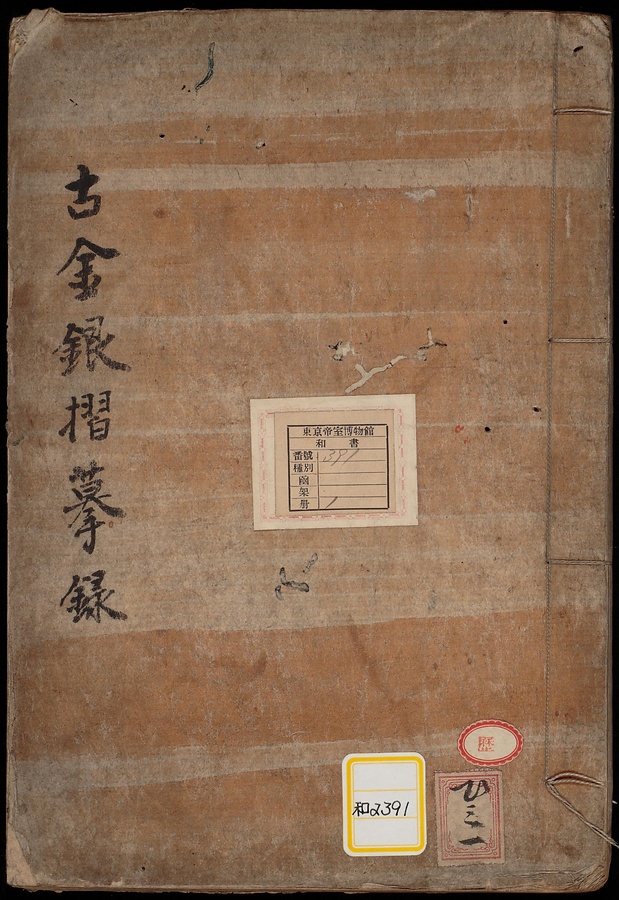 古金銀摺摹録
東京帝室博物館
和書
番號 391
種別
函
架
冊 1
和2391
ひ三一